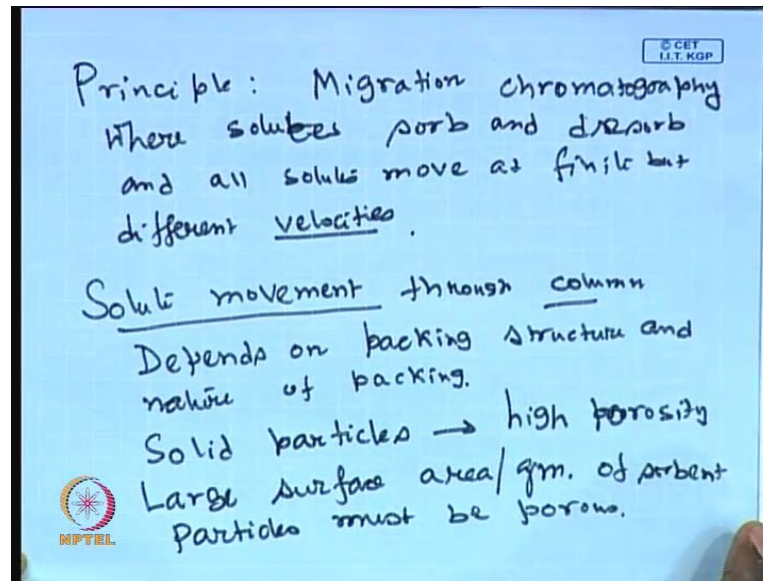 © CET
I.I.T. KGP
Principle: Migration chromatography
where solutes sorb and desorb
and all solute move at finite but
different velocities.
Solute movement through column
Depends on packing structure and
nature of packing.
Solid particles → high porosity
Large surface area/gm. of sorbent
Particles must be porous.
NPTEL